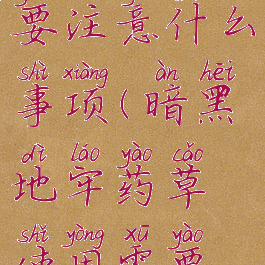 要注意什么
shì xiàng àn hēi
事项(暗黑
dì láo yào cǎo
地牢药草
shǐ yòng xū yào
使用需要